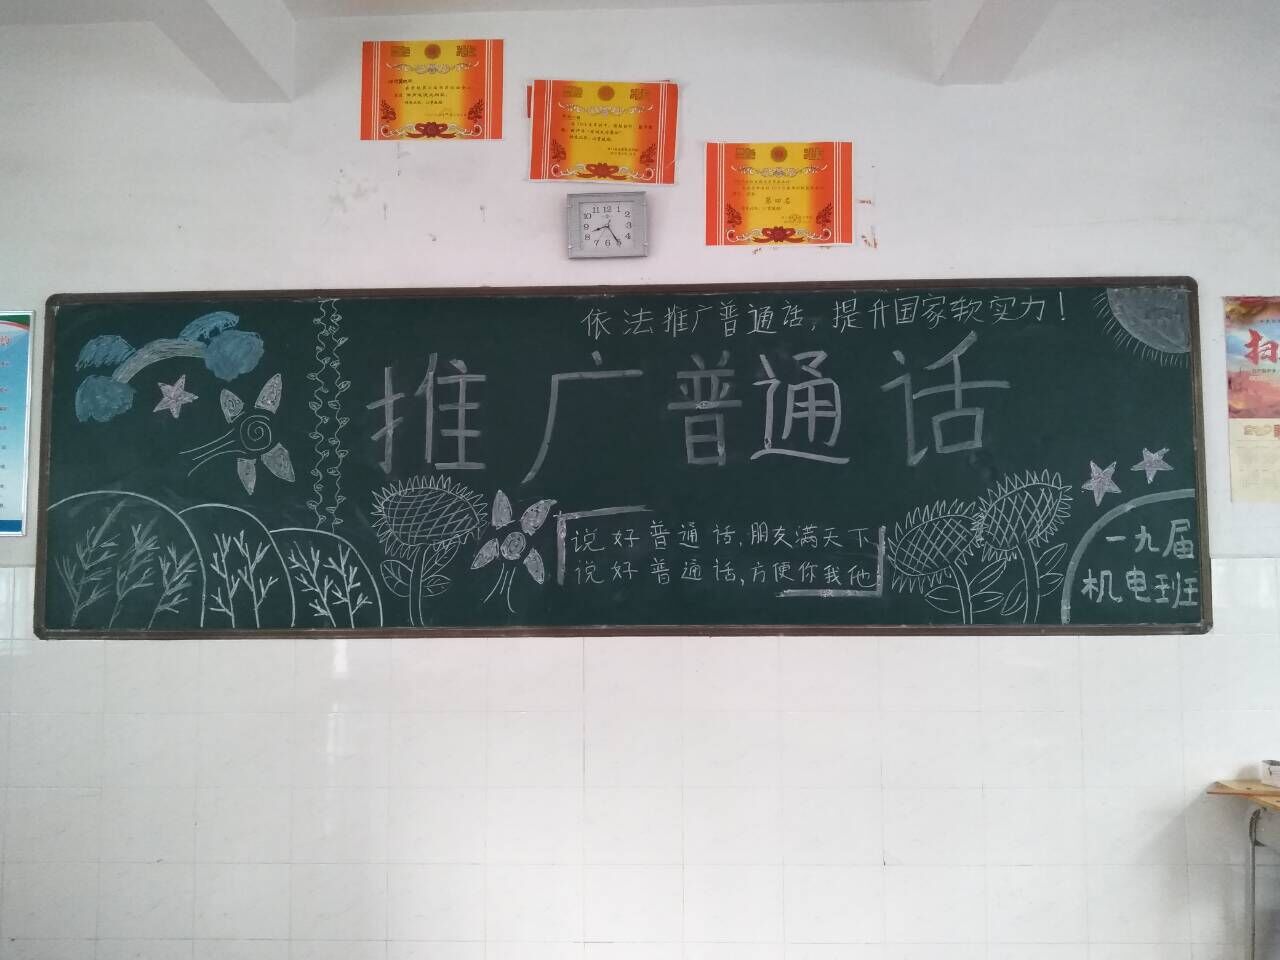 第四名
11 12 1
10 2
9 3
8 4
7 6 5
依法推广普通话，提升国家软实力！
推广普通话
说好普通话，朋友满天下
说好普通话，方便你我他
一九届
机电班
扫